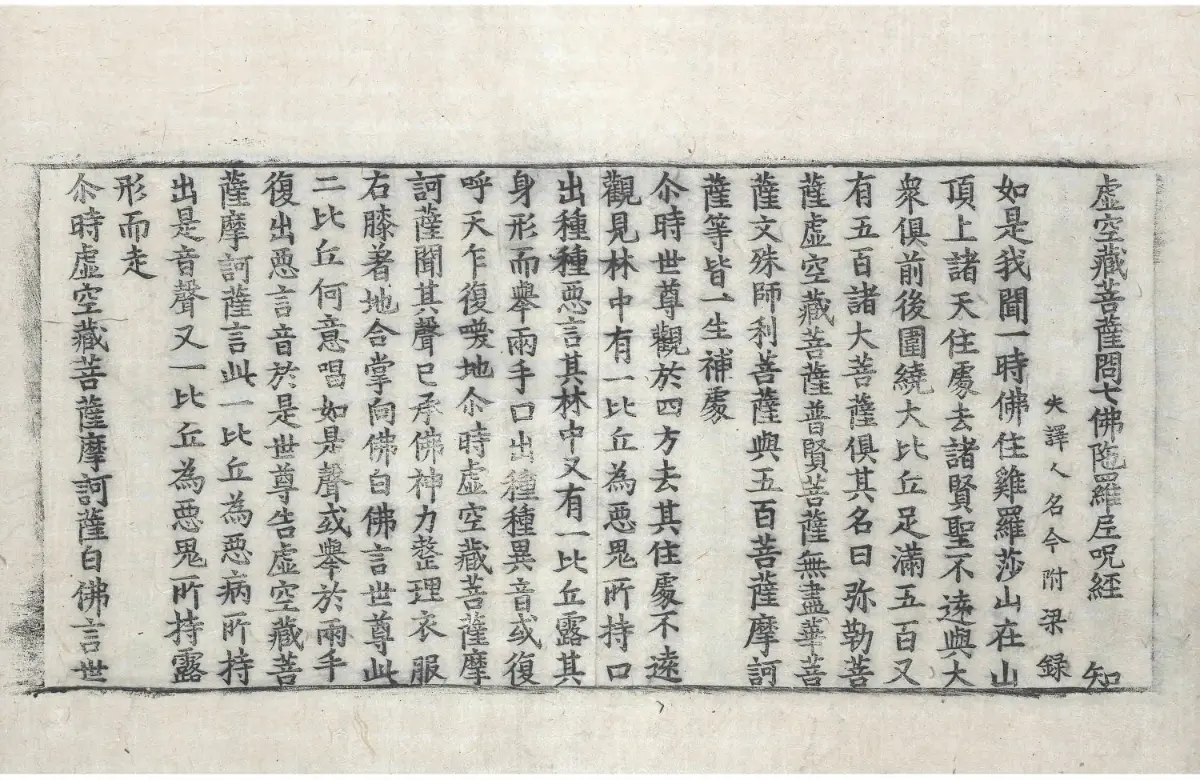 虛空藏菩薩問七佛陁羅尼呪經 知
失譯人名今附梁錄
如是我聞一時佛住雞羅莎山在山
頂上諸天住處去諸賢聖不遠與大
衆俱前後圍繞大比丘足滿五百又
有五百諸大菩薩俱其名曰弥勒菩
薩虛空藏菩薩普賢菩薩無盡華菩
薩文殊師利菩薩與五百菩薩摩訶
薩等皆一生補處
尒時世尊觀於四方去其住處不遠
觀見林中有一比丘為惡鬼所持口
出種種惡言其林中又有一比丘露其
身形而舉兩手口出種種異音或復
呼天乍復喚地尒時虛空藏菩薩摩
訶薩聞其聲已承佛神力整理衣服
右膝著地合掌向佛白佛言世尊此
二比丘何意唱如是聲或舉於兩手
復出惡言音於是世尊告虛空藏菩
薩摩訶薩言此一比丘為惡病所持
出是音聲又一比丘為惡鬼所持露
形而走
尒時虛空藏菩薩摩訶薩白佛言世